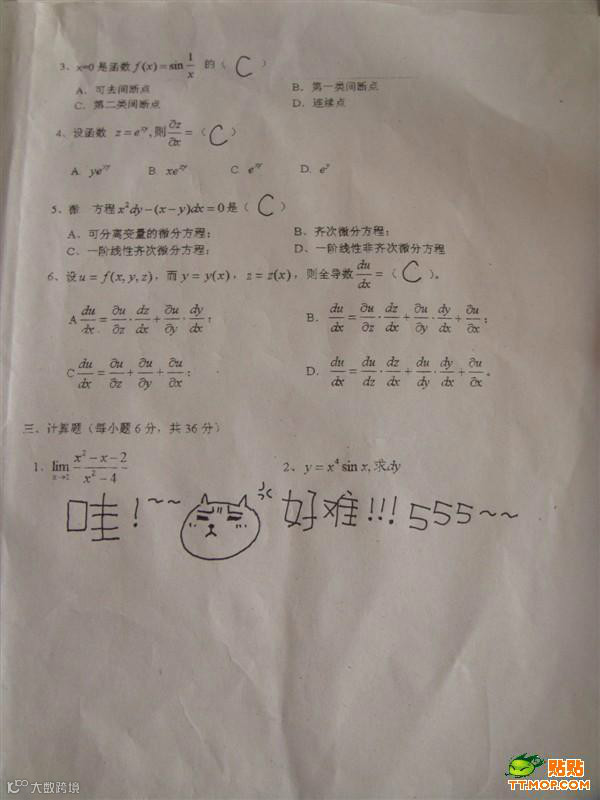 3、x=0 是函数 f(x)=sin 1/x 的（ C ）
A、可去间断点 B、第一类间断点
C、第二类间断点 D、连续点
4、设函数 z=e^{xy}, 则 ∂z/∂x =（ C ）
A. ye^{xy} B. xe^{xy} C. e^{xy} D. e^y
5、微 方程 x²dy-(x-y)dx=0 是（ C ）
A、可分离变量的微分方程； B、齐次微分方程；
C、一阶线性齐次微分方程； D、一阶线性非齐次微分方程
6、设 u=f(x,y,z)，而 y=y(x)，z=z(x)，则全导数 du/dx =（ C ）。
A du/dx = ∂u/∂z · dz/dx + ∂u/∂y · dy/dx； B. du/dx = ∂u/∂z · dz/dx + ∂u/∂y · dy/dx + ∂u/∂x；
C du/dx = ∂u/∂z + ∂u/∂y + ∂u/∂x； D. du/dx = du/dz · dz/dx + du/dy · dy/dx + ∂u/∂x。
三、计算题（每小题 6 分，共 36 分）
1、lim x→2 (x²-x-2)/(x²-4) 2、y=x⁴ sin x, 求dy
哇！~~ 好难!!! 555~~
大数跨境
贴贴
TT.MOP.COM